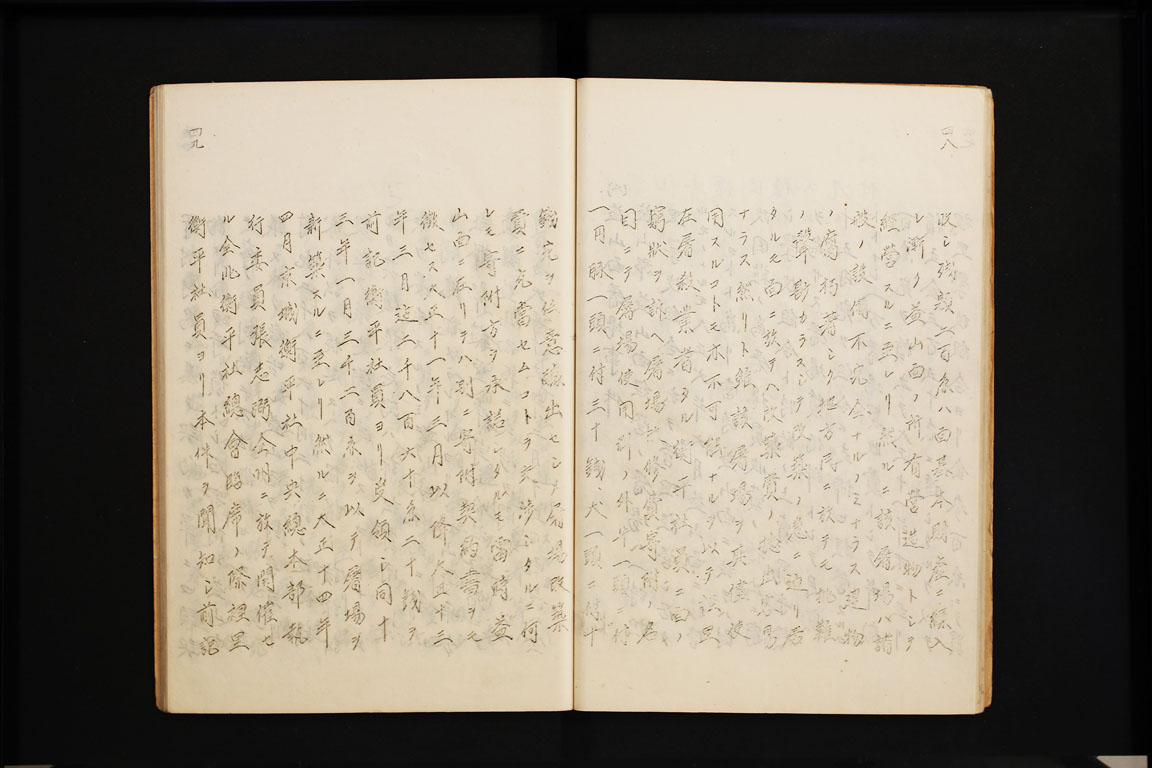 四八
改シ残額一百余ハ面基本財産ニ編入
レ漸ク益山面ノ所有営造物トシヲ
経営スルニ至レリ然ルニ該屠場ハ諸
般ノ設備不完全ナルノミナラス建物
ノ腐朽著シク地方民ニ於テモ批難
ノ聲尠カラスシテ改築ノ急ニ迫リ居
タルモ面ニ於テハ改築費ノ捻出容易
ナラス然リト雖該屠場ヲ其儘使
用スルコトモ亦不可能ナルヲ以テ裡里
在屠殺業者タル衡平社員ニ面ノ
窮状ヲ訴ヘ屠場ノ修費寄附ノ名
目ニテ屠場使用料ノ外牛一頭ニ付
一円豚一頭ニ付三十銭、犬一頭ニ付十
銭宛ヲ任意醵出セシメ屠場改築
費ニ充當セムコトヲ交渉シタルニ何
レモ寄附方ヲ承諾シタルモ當時益
山面ニ在リテハ別ニ寄附契約書ヲモ
徴セス大正十一年三月以降大正十三
年三月迄二千八百六十余二十銭ヲ
前記衡平社員ヨリ受領シ同十
三年一月三千二百余ヲ以テ屠場ヲ
新築スルニ至レリ然ルニ大正十四年
四月京城衡平社中央總本部執
行委員張志弼全州ニ於テ開催セ
ル全北衡平社總會臨席ノ際裡里
衡平社員ヨリ本件ヲ聞知シ前記
四九